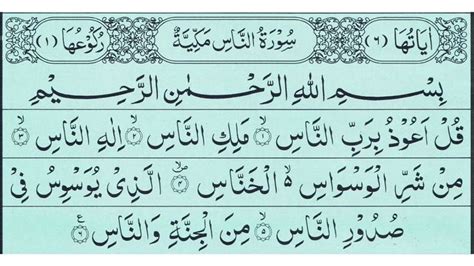 اٰيَاتُهَا (٦) سُوْرَةُ النَّاسِ مَكِّيَّةٌ رُكُوْعُهَا (١)
بِسْمِ اللهِ الرَّحْمٰنِ الرَّحِيْمِ
قُلْ اَعُوْذُ بِرَبِّ النَّاسِ ۙ﴿١﴾ مَلِكِ النَّاسِ ۙ﴿٢﴾ اِلٰهِ النَّاسِ ۙ﴿٣﴾
مِنْ شَرِّ الْوَسْوَاسِ ۙ۬ الْخَنَّاسِ ۙ﴿٤﴾ الَّذِيْ يُوَسْوِسُ فِيْ
صُدُوْرِ النَّاسِ ۙ﴿٥﴾ مِنَ الْجِنَّةِ وَالنَّاسِ ﴿٦﴾ ع